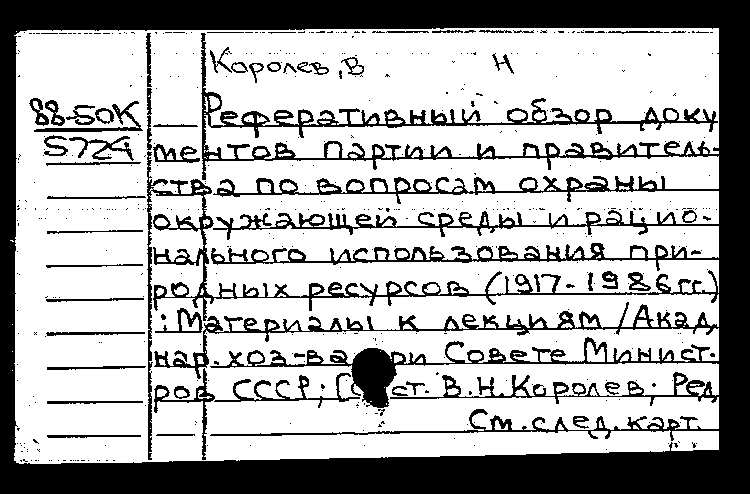 Королев, В Н
88-50К
5724
Реферативный обзор доку
ментов партии и правитель-
ства по вопросам охраны
окружающей среды и рацио-
нального использования при-
родных ресурсов (1917-1986гг.)
: Материалы к лекциям / Акад.
нар. хоз-ва при Совете Минист-
ров СССР; [Сост. В.Н.Королев; Ред
См. след. карт.